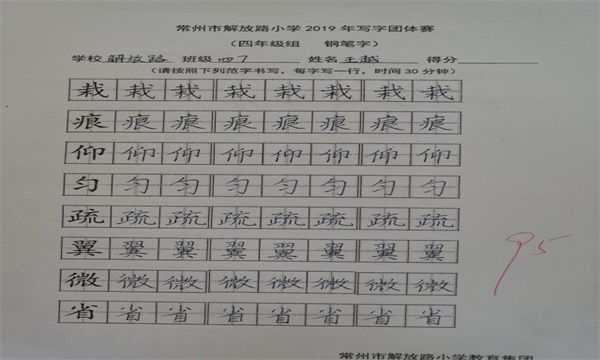 常州市解放路小学2019年写字团体赛
（四年级组 钢笔字）
学校 解放路 班级 四7 姓名 王越 得分
（请按照下列范字书写，每字写一行，时间30分钟）
栽 栽 栽 栽 栽 栽 栽 栽 栽
痕 痕 痕 痕 痕 痕 痕 痕 痕
仰 仰 仰 仰 仰 仰 仰 仰 仰
匀 匀 匀 匀 匀 匀 匀 匀 匀
疏 疏 疏 疏 疏 疏 疏 疏 疏
翼 翼 翼 翼 翼 翼 翼 翼 翼
微 微 微 微 微 微 微 微 微
省 省 省 省 省 省 省 省 省
95
常州市解放路小学教育集团